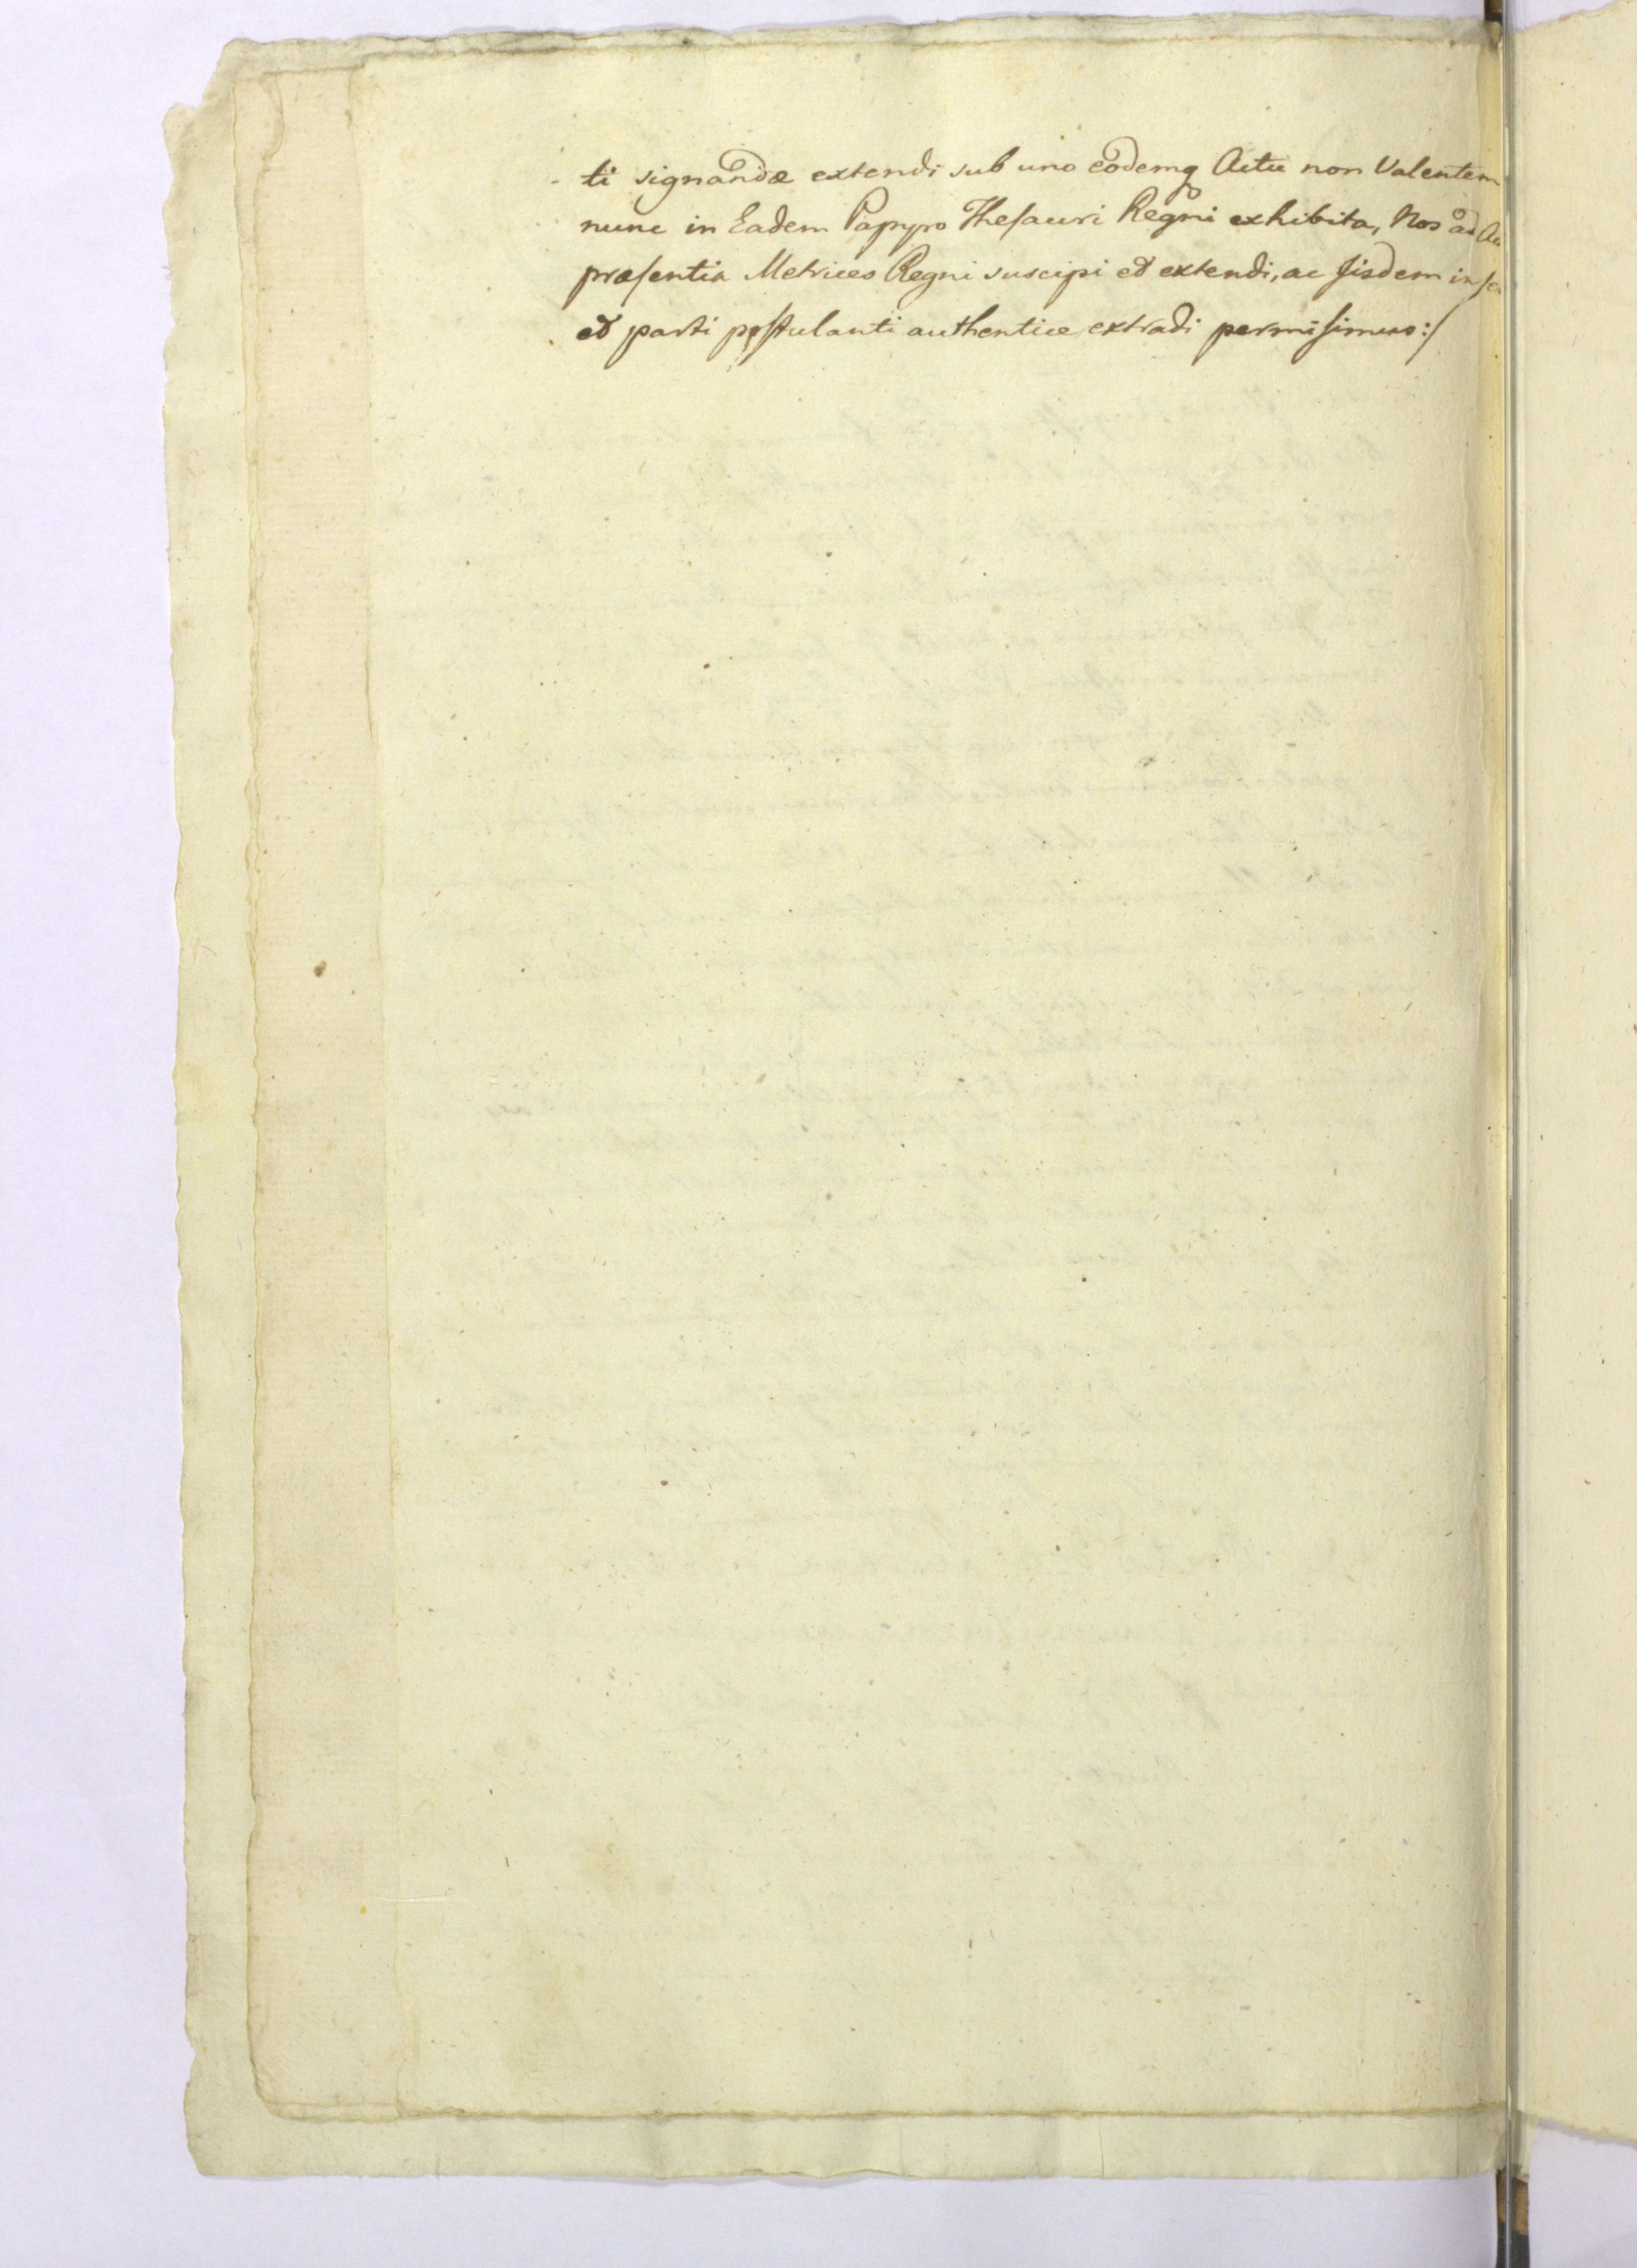 -ti signandæ extendi sub uno eodemq Actu non Valentem
nunc in Eadem Papyro Thesauri Regni exhibita, Nos ad
præsentia Metrices Regni suscipi et extendi, ac Jisdem
et parti postulanti authentice extradi permisimus:/